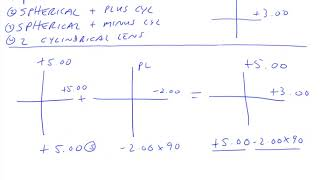 ② SPHERICAL + PLUS CYL
③ SPHERICAL + MINUS CYL
④ 2 CYLINDRICAL LENS
+3.00
+5.00 PL +5.00
+5.00 + -2.00 = +3.00
+5.00 Ⓢ -2.00 x 90 +5.00 -2.00 x 90